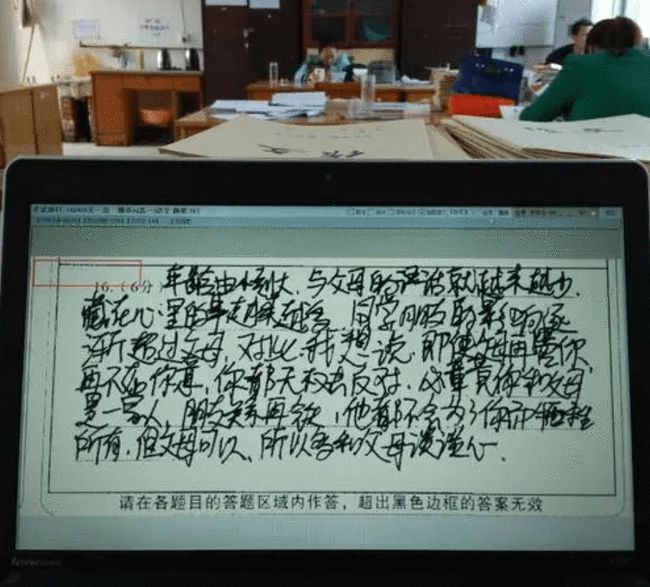 作文
16.(6分) 年龄由小到大,与父母的说话就越来越少,
藏在心里的事越来越多,同学朋友的影响逐
渐超过父母,对此,我想说,即使父母再骂你,
再不在你意,你都无权去反对,必竟你和父母
是一家人,朋友关系再铁,他都不会为了你而牺牲
所有,但父母可以,所以多和父母谈谈心。
请在各题目的答题区域内作答,超出黑色边框的答案无效
lenovo